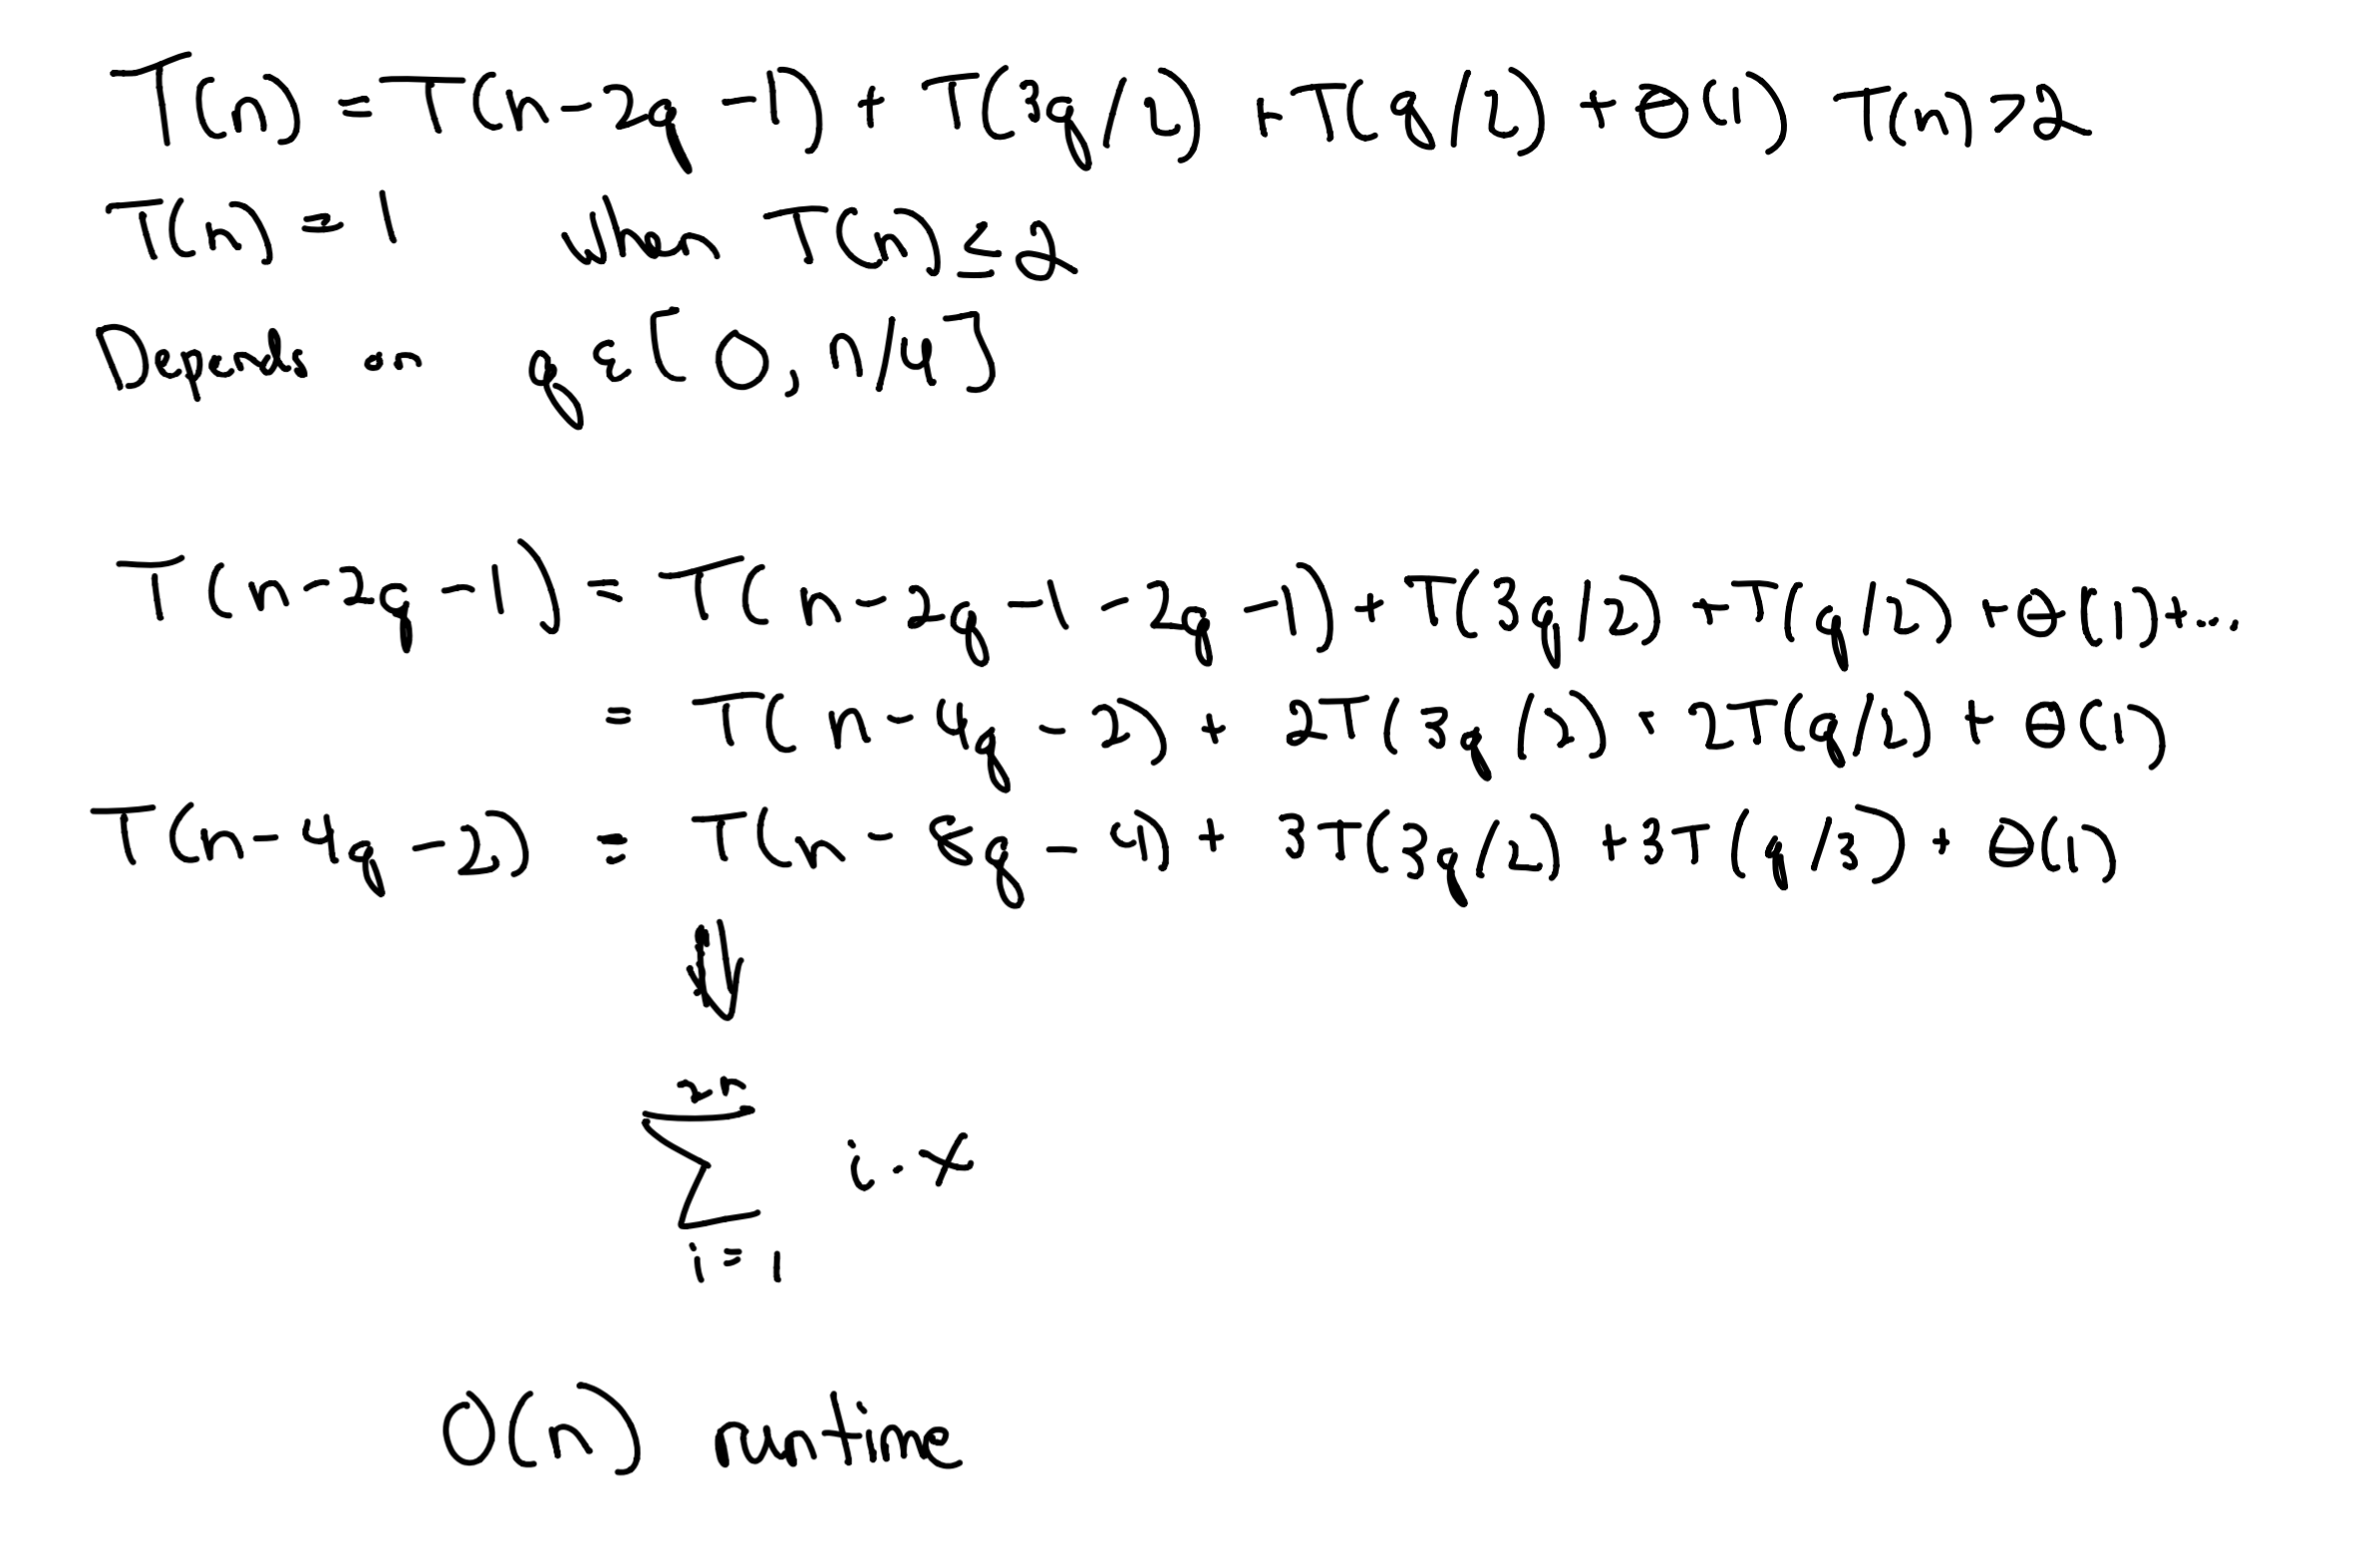 T(n) = T(n-2q-1) + T(3q/2) + T(q/2) + Θ(1) T(n) > 2
T(n) = 1 When T(n) ≤ 2
Depends on q ε [0, n/4]
T(n-2q-1) = T(n-2q-1-2q-1) + T(3q/2) + T(q/2) + Θ(1)+...
= T(n-4q-2) + 2T(3q/2) + 2T(q/2) + Θ(1)
T(n-4q-2) = T(n-8q-4) + 3T(3q/2) + 3T(q/3) + Θ(1)
⇓
2n
∑ i·x
i=1
O(n) runtime